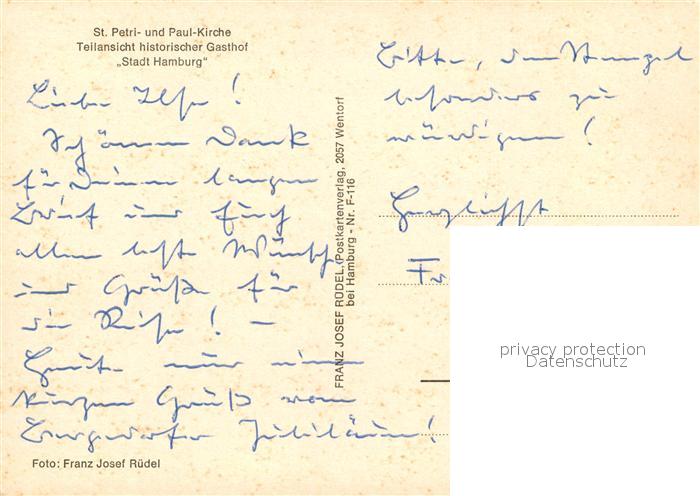 St. Petri- und Paul-Kirche
Teilansicht historischer Gasthof
„Stadt Hamburg"
Liebe Ilse!
Schönen Dank
für Deinen langen
Brief und
allen Wünsche
und Grüße für
die Reise! –
Heute nur einen
kurzen Gruß vom
Bergedorfer Jubiläum!
Foto: Franz Josef Rüdel
FRANZ JOSEF RÜDEL, Postkartenverlag, 2057 Wentorf
bei Hamburg - Nr. F-116
Bitte, den Stempel
besonders zu
würdigen!
Herzlichst
Fr
privacy protection
Datenschutz